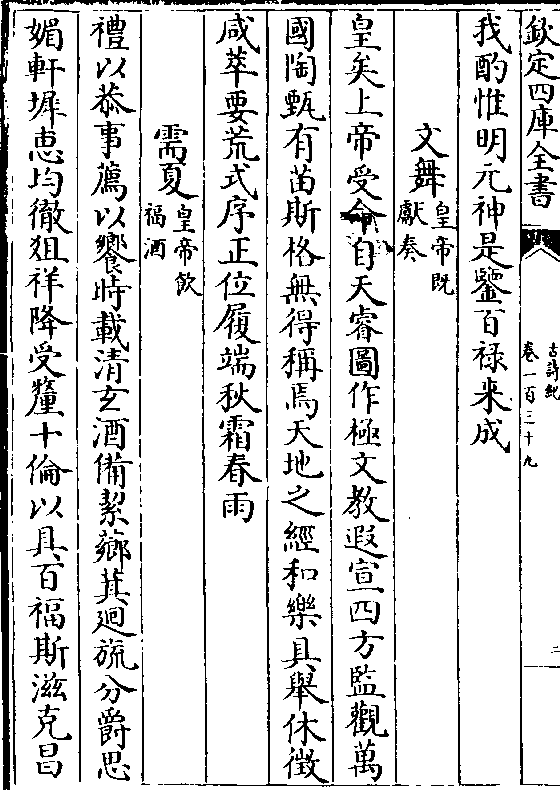 欽定四庫全書
古詩紀
卷一百三十九
二
我酌惟明元神是鑒百禄来成
文舞皇帝既
獻奏
皇矣上帝受命自天睿圖作極文教遐宣四方監觀萬
國陶甄有苗斯格無得稱焉天地之經和樂具舉休徴
咸萃要荒式序正位履端秋霜春雨
需夏皇帝飲
福酒
禮以恭事薦以饗時載清玄酒備絜薌萁廻旒分爵思
媚軒墀恵均徹俎祥降受釐十倫以具百福斯滋克昌